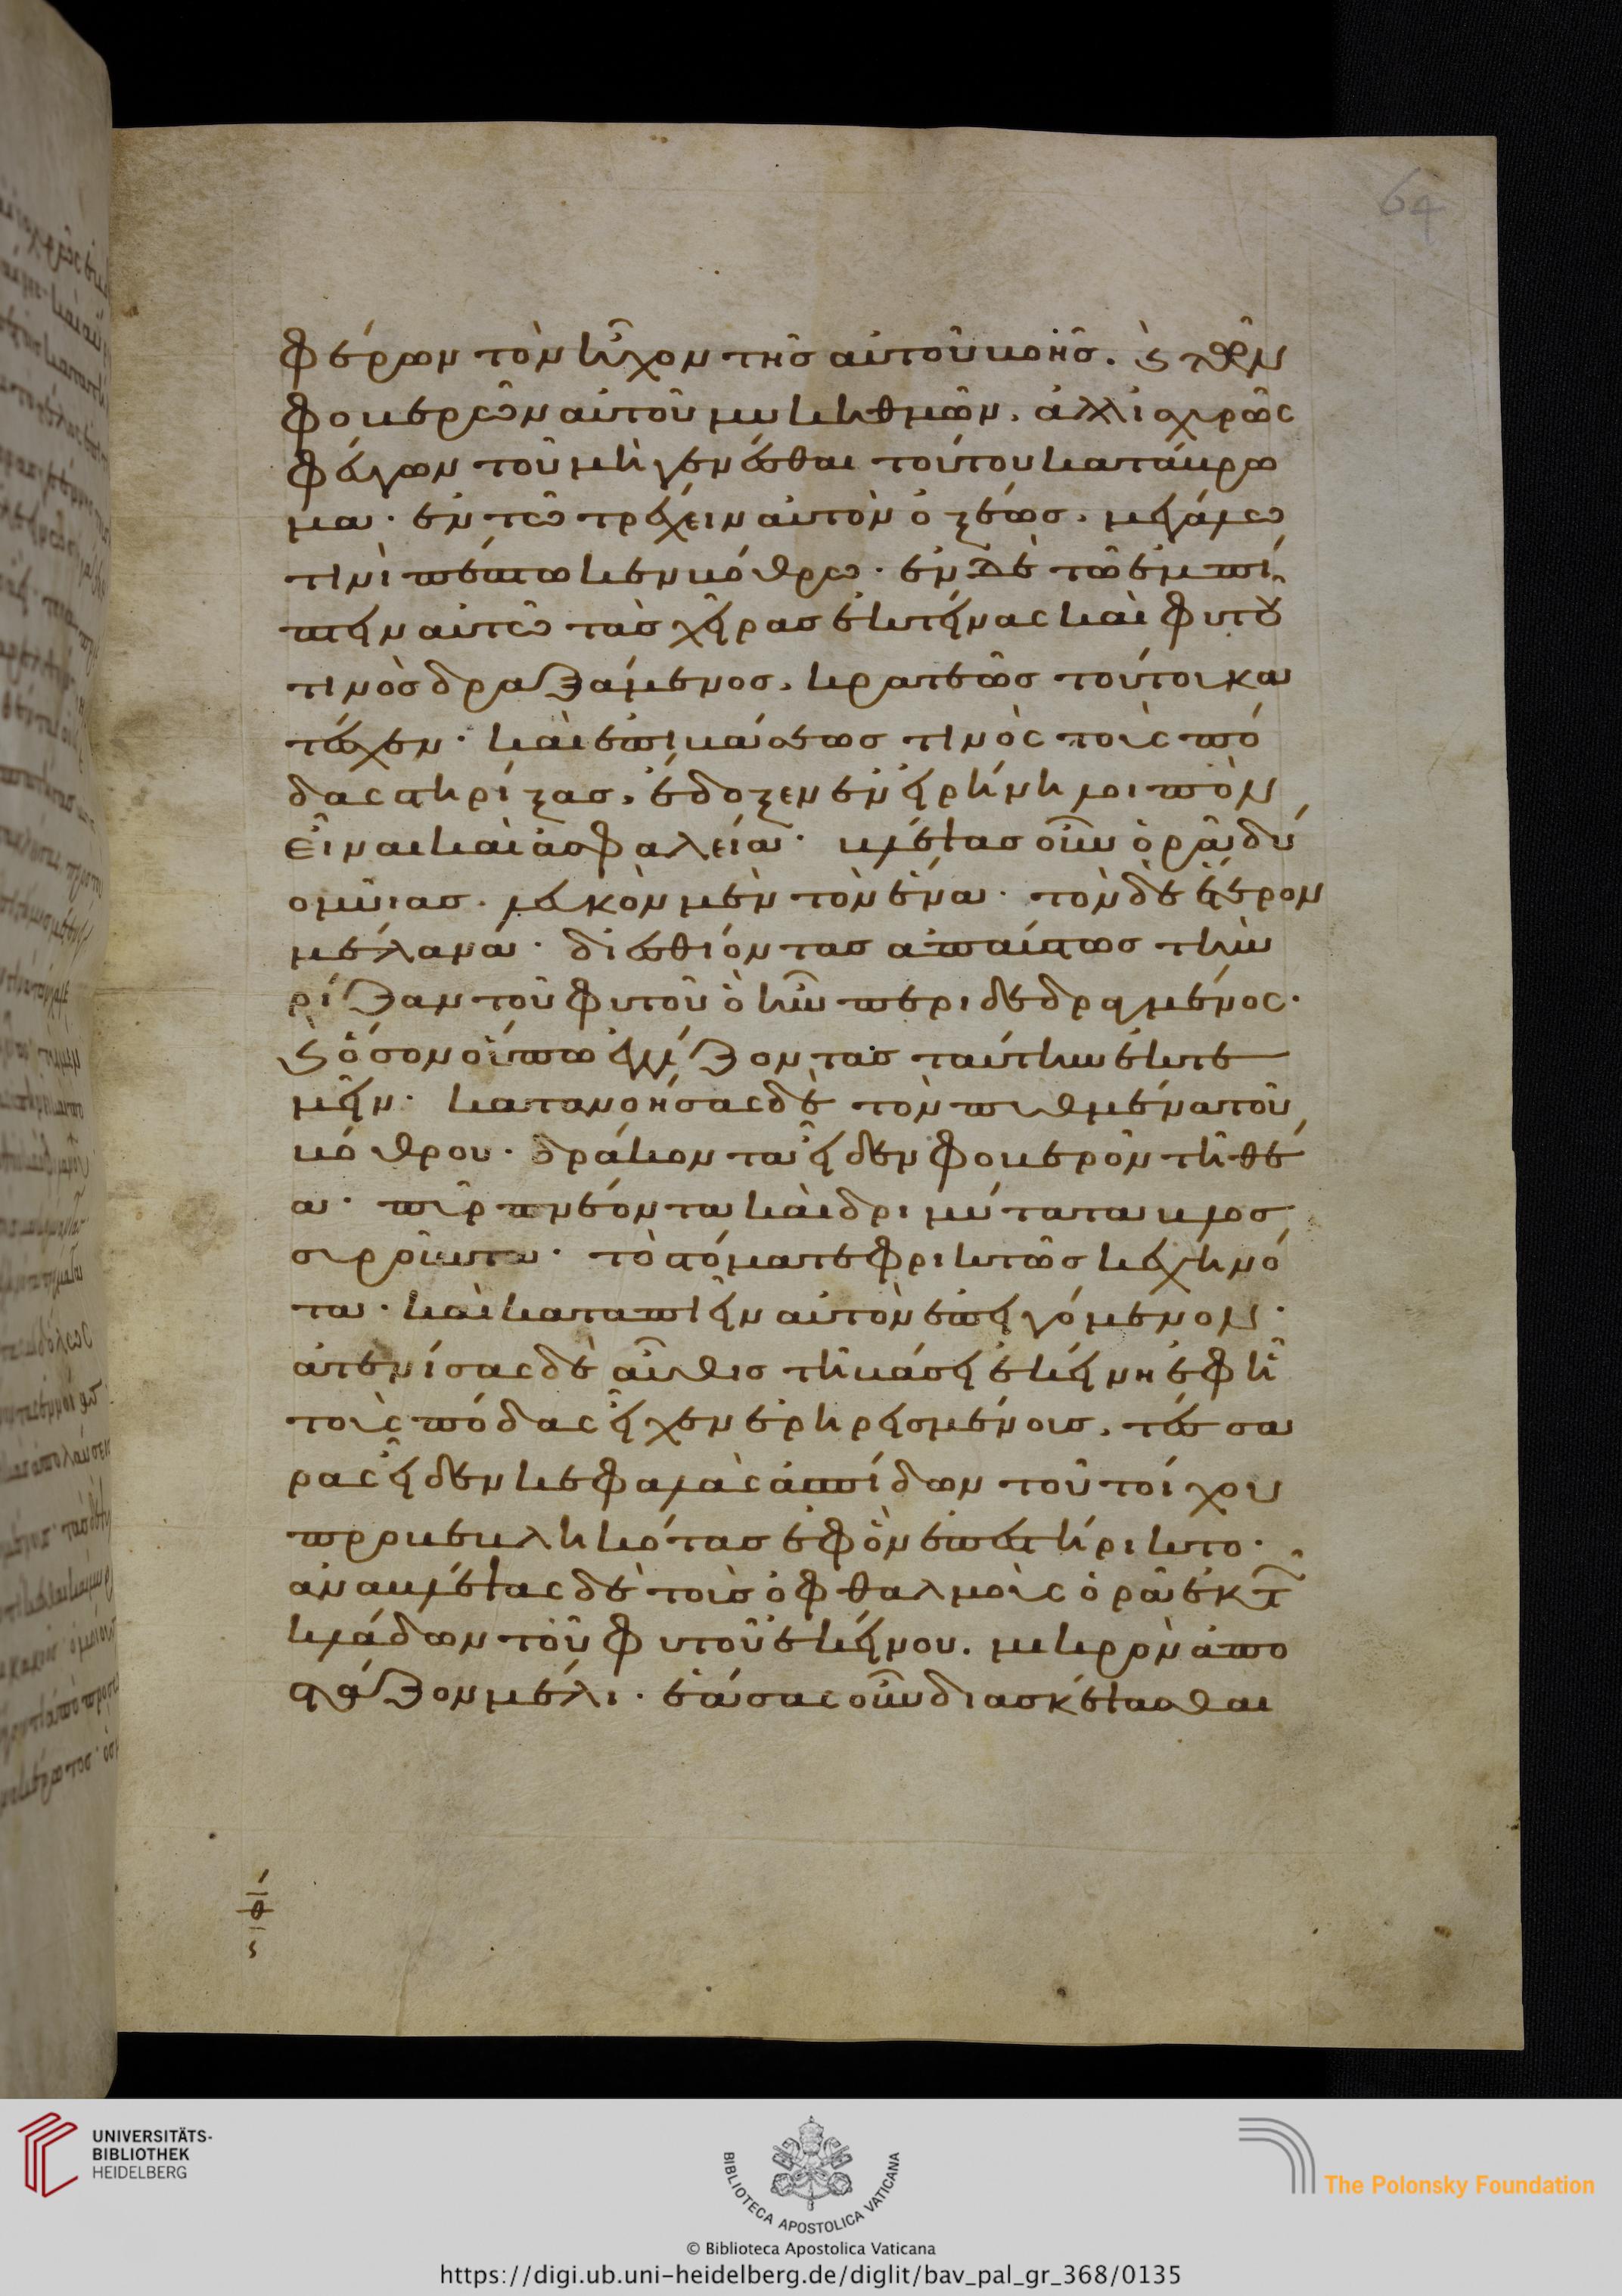 φέρων τὸν ἦχον τῆς αὐτοῦ βοῆς. ϗ τῶν
φοβερῶν αὐτοῦ μυκηθμῶν. ἀλλ ἰσχυρῶς
φεύγων τοῦ μὴ γενέσθαι τούτου κατάβρω
μα· ἐν τῶ τρέχειν αὐτὸν ὀξέως. μεγάλω
τινὶ πέπτωκεν βόθρω· ἐν δὲ τῶ ἐμπί
πτειν αὐτῶ τὰσ χεῖρας ἐκτείνας καὶ φυτοῦ
τινὸσ δραξάμενος. κραταιῶς τούτου κα
τέσχεν· καὶ ἐπὶ βάσεως τινὸς τοὺς πό
δας στηρίξας. ἔδοξεν ἐν εἰρήνη λοιπὸν
εἶναι καὶ ἀσφαλεία· βλέψας οὖν ὁρᾶ δύ
ο μῦας. λευκὸν μὲν τὸν ἕνα· τὸν δὲ ἕτερον
μέλανα· διεσθίοντας ἀπαύστως τὴν
ρίζαν τοῦ φυτοῦ ὃ ἦν περιδεδραγμένος·
ϗ ὅσον οὔπω ἐγγίζοντας ταύτην ἐκτε
μεῖν· κατανοήσας δὲ τὸν πυθμένα τοῦ
βόθρου· δράκοντα εἶδεν φοβερὸν τῆ θέ
α· πῦρ πνέοντα καὶ δριμύτατα βλοσ
συροῦντα· τὸ στόμα τε φρικτῶς κεχηνό
τα· καὶ καταπιεῖν αὐτὸν ἐπειγόμενον·
ἀτενίσας δὲ αὖθις τῆ βάσει ἐκείνη ἐφ ῆ
τοὺς πόδας εἶχεν ἐρηρεισμένους. τέσσα
ρας εἶδεν κεφαλὰς ἀσπίδων τοῦ τοίχου
προβεβληκότας ἐφ ὃν ἐπεστήρικτο·
ἀναβλέψας δὲ τοὺς ὀφθαλμοὺς ὁρᾶ ἐκ τῶν
κλάδων τοῦ φυτοῦ ἐκείνου. μικρὸν ἀπο
στάζον μέλι· ἐάσας οὖν διασκέψασθαι
64
UNIVERSITÄTS-
BIBLIOTHEK
HEIDELBERG
BIBLIOTECA APOSTOLICA VATICANA
The Polonsky Foundation
© Biblioteca Apostolica Vaticana
https://digi.ub.uni-heidelberg.de/diglit/bav_pal_gr_368/0135